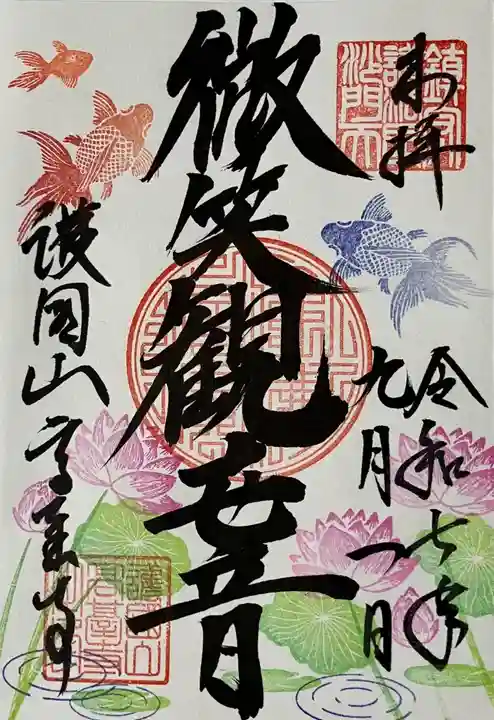 奉拝
令和七年
九月一日
微笑観音
護国山高臺寺